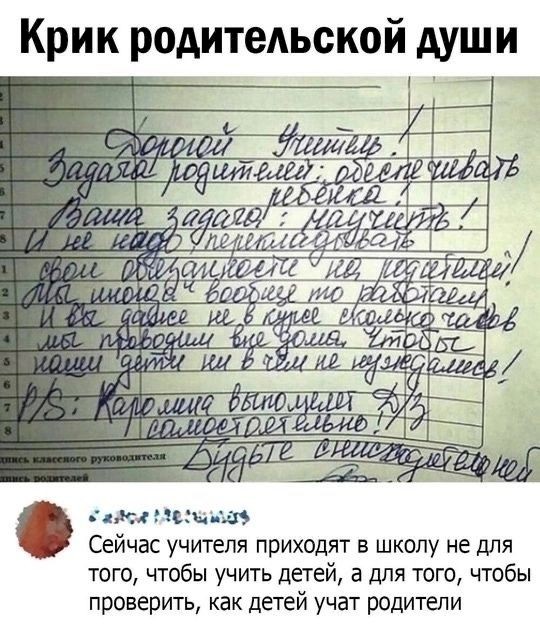 Крик родительской души
Дорогой Учитель!
Задача родителей: обеспечивать
ребёнка!
Ваша задача: научить!
И не надо перекладовать
свои обязанности на родителей!
Мы иногда вообще то работаем
И вы даже не в курсе сколько часов
мы проводим вне дома, чтобы
наши дети ни в чём не нуждались!
P/S: Каролина выполмелет Д/З
самостоятельно!
Будьте снисходительней
пись классного руководителя
пись родителей
Сейчас учителя приходят в школу не для
того, чтобы учить детей, а для того, чтобы
проверить, как детей учат родители